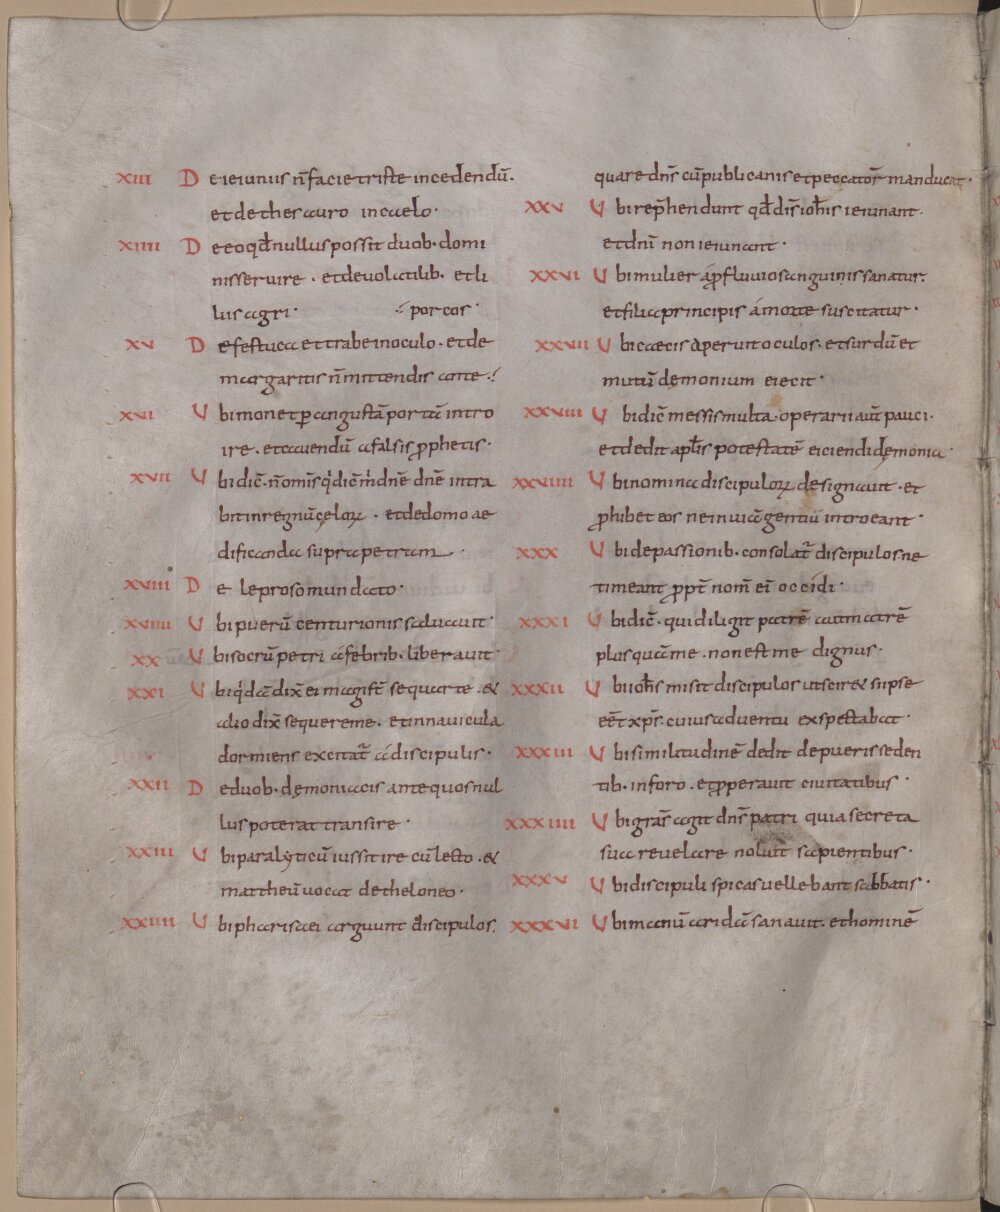 XIII De ieiuniis n̄ facie triste incedendū.
et de thesauro in caelo.
XIIII De eo qđ nullus possit duob. domi
nis servire . et de volatilib. et li
liis agri. / porcos.
XV De festuca et trabe in oculo . et de
margaritis n̄ mittendis ante /
XVI Vbi monet ꝑ angustā portā intro
ire . et cavendū a falsis ꝓphetis.
XVII Vbi dic̄ . n̄ omīs q̇ dic̄ m̓ dn̄e dn̄e intra
bit in regnū cęloꝝ . et de domo ae
dificanda supra petram .
XVIII De leproso mundato.
XVIIII Vbi puerū centurionis salvavit
XX Vbi socrū petri a febrib. liberavit
XXI Vbi q̇dā dix̄ ei magist̄ sequar te . &
alio dix̄ sequere me . et in navicula
dormiens excitat̄ a discipulis.
XXII De duob. dęmoniacis ante quos nul
lus poterat transire .
XXIII Vbi paralyticū iussit ire cū lecto . &
mattheū vocat de theloneo .
XXIIII Vbi pharisaei arguunt discipulos.
quare dn̄s cū publicanis et peccatorī manducat .
XXV Vbi rep̄hendunt qđ dis̄ ioh̄is ieiunant .
et dn̄i non ieiunant .
XXVI Vbi mulier a ꝓfluvio sanguinis sanatur.
et filia principis a morte suscitatur .
XXVII Vbi caecis aperuit oculos . et surdū et
mutū dęmonium eiecit .
XXVIII Vbi dic̄ messis multa . operarii aut̄ pauci .
et dedit apl̄is potestatē eiciendi dęmonia .
XXVIIII Vbi nomina discipuloꝝ designavit . et
ꝓhibet eos ne in viā gentiū introeant .
XXX Vbi de passionib. consolat̄ discipulos . ne
timeant ꝓpt̄ nom̄ ei̅ occidi .
XXXI Vbi dic̄ . qui diligit patrē aut matrē
plus quā me . non est me dignus .
XXXII Vbi ioh̄s misit discipulos ut scir& si ipse
eēt xp̄s . cuius adventu exspectabat .
XXXIII Vbi similitudinē dedit de pueris seden
tib. in foro . et ꝓperavit civitatibus .
XXXIIII Vbi grās agit dn̄s patri quia secreta
sua revelare noluit sapientibus .
XXXV Vbi discipuli spicas vellebant sabbatis .
XXXVI Vbi manū aridā sanavit . et hominē